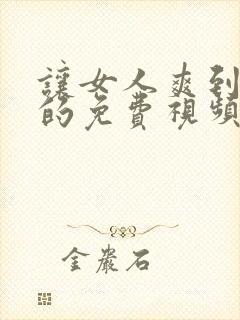 讓女人爽到
的免費視頻
金巖石